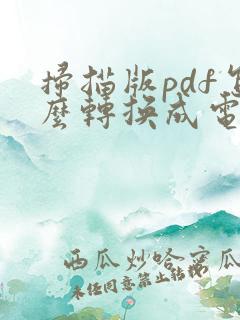 掃描版pdf怎
麼轉換成電
西瓜炒哈蜜瓜
未经同意禁止转载